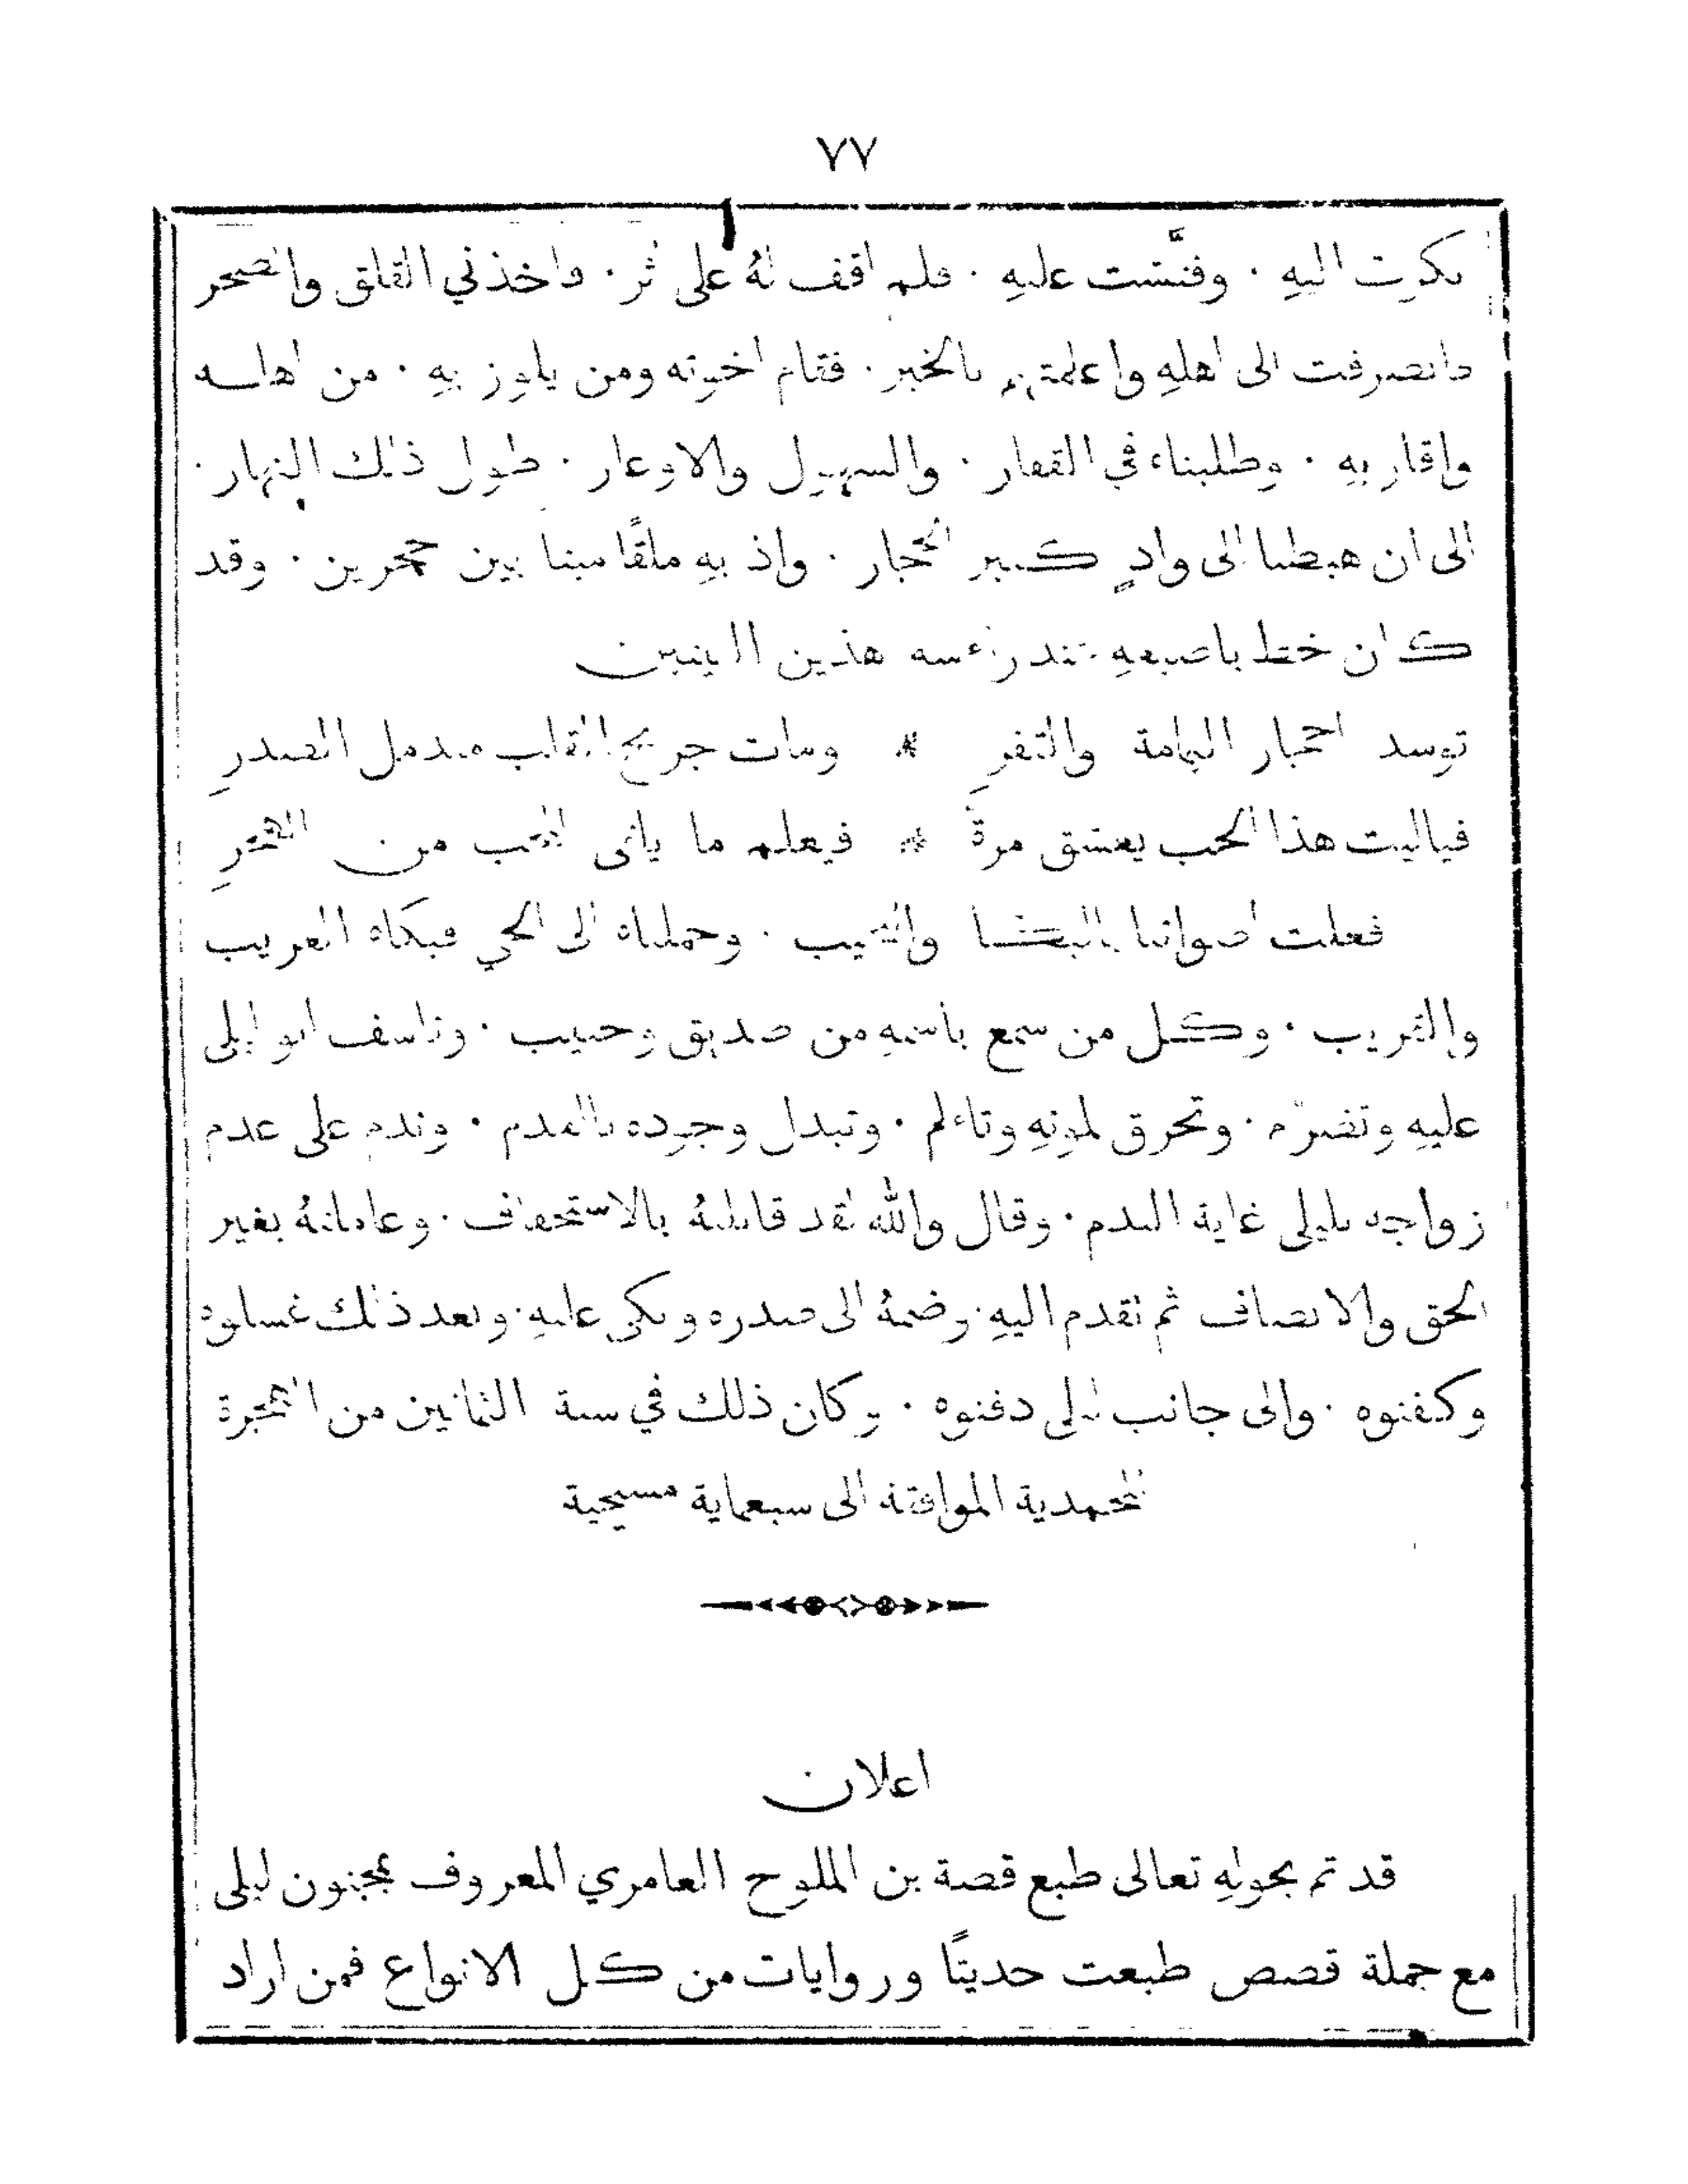 ٧٧
بكرت اليهِ · وفتَّشت عليهِ · فلم اقف لهُ على اثر · فاخذني القلق والضجر
فانصرفت الى اهلهِ واعلمتهم بالخبر · فقام اخوته ومن يلوز بهِ · من اهله
واقاربهِ · وطلبناه في القفار · والسهول والاوعار · طول ذلك النهار ·
الى ان هبطنا الى وادٍ كثير الحجار · واذ بهِ ملقًا ميتا بين حجرين · وقد
كان خط باصبعهِ عند راءسه هذين البيتين
توسد احجار اليمامة والقفرِ * ومات جريح القلب مندمل الصدرِ
فياليت هذا الحب يعشق مرةً * فيعلم ما يلقى المحب من الهجرِ
فعلت اصواتنا بالبكا والنحيب · وحملناه الى الحي فبكاه الغريب
والقريب · وكل من سمع باسمهِ من صديق وحبيب · وتاسف ابو ليلى
عليهِ وتضرّم · وتحرق لموتهِ وتاءلم · وتبدل وجوده بالعدم · وندم على عدم
زواجه بليلى غاية الندم · وقال والله لقد قابلتهُ بالاستخفاف · وعاملتهُ بغير
الحق والانصاف ثم تقدم اليهِ · وضمهُ الى صدره وبكى عليهِ · وبعد ذلك غسلوه
وكفنوه · والى جانب ليلى دفنوه · وكان ذلك في سنة الثمانين من الهجرة
المحمدية الموافقة الى سبعماية مسيحية
اعلان
قد تم بحولهِ تعالى طبع قصة بن الملوح العامري المعروف بمجنون ليلى
مع جملة قصص طبعت حديثًا وروايات من كل الانواع فمن اراد